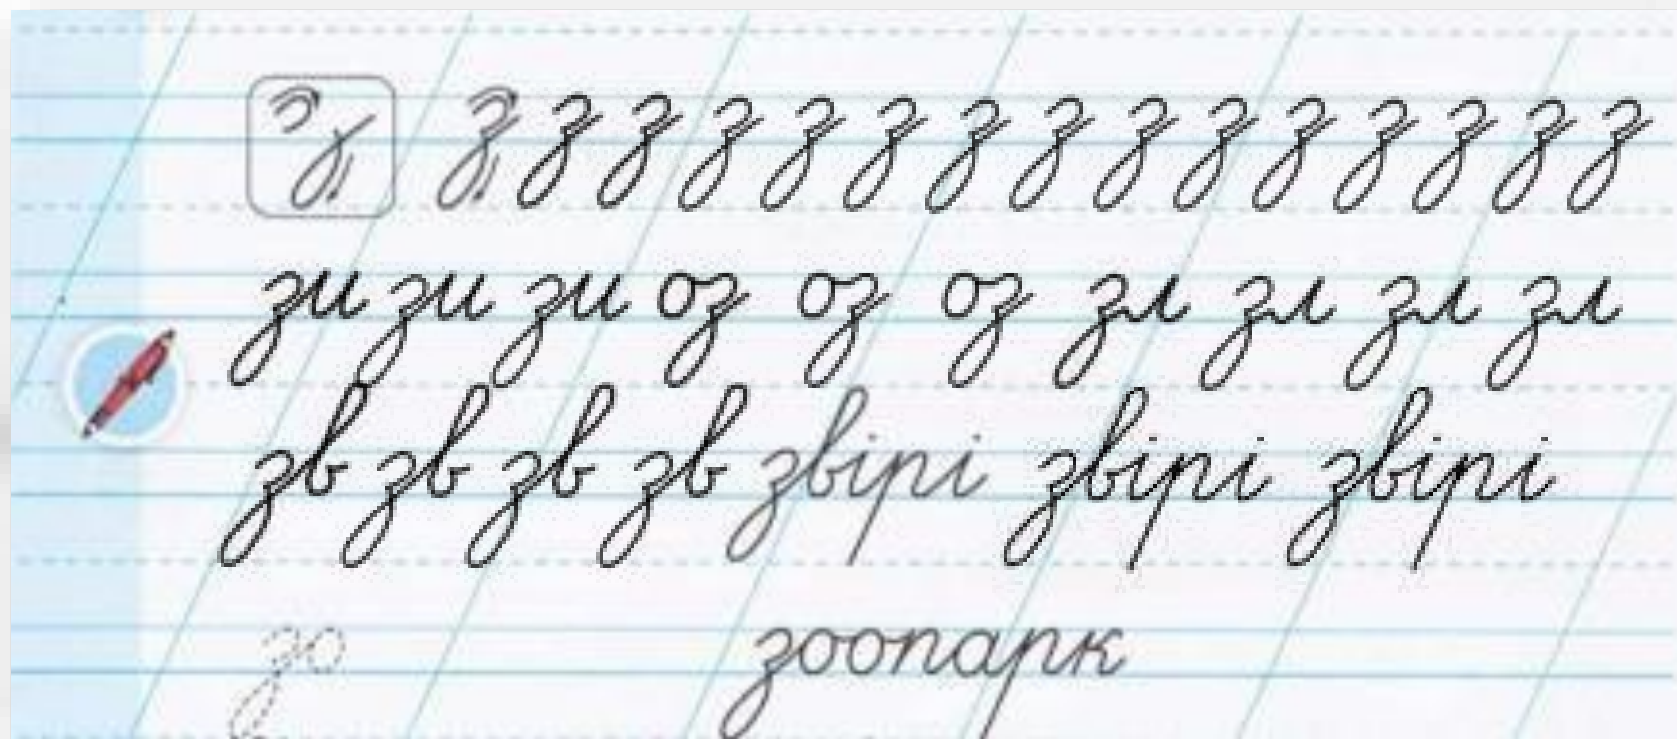 з з з з з з з з з з з з з з з з
зи зи зи оз оз оз зл зл зл зл
зв зв зв зв звірі звірі звірі
зо зоопарк